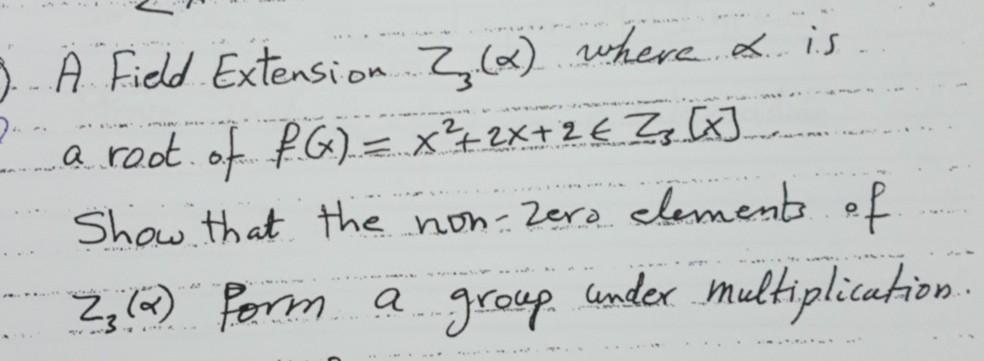 A Field Extension Z₃(α) where α is
a root of f(x) = x²+2x+2 ∈ Z₃[x]
Show that the non-zero elements of
Z₃(α) form a group under multiplication.